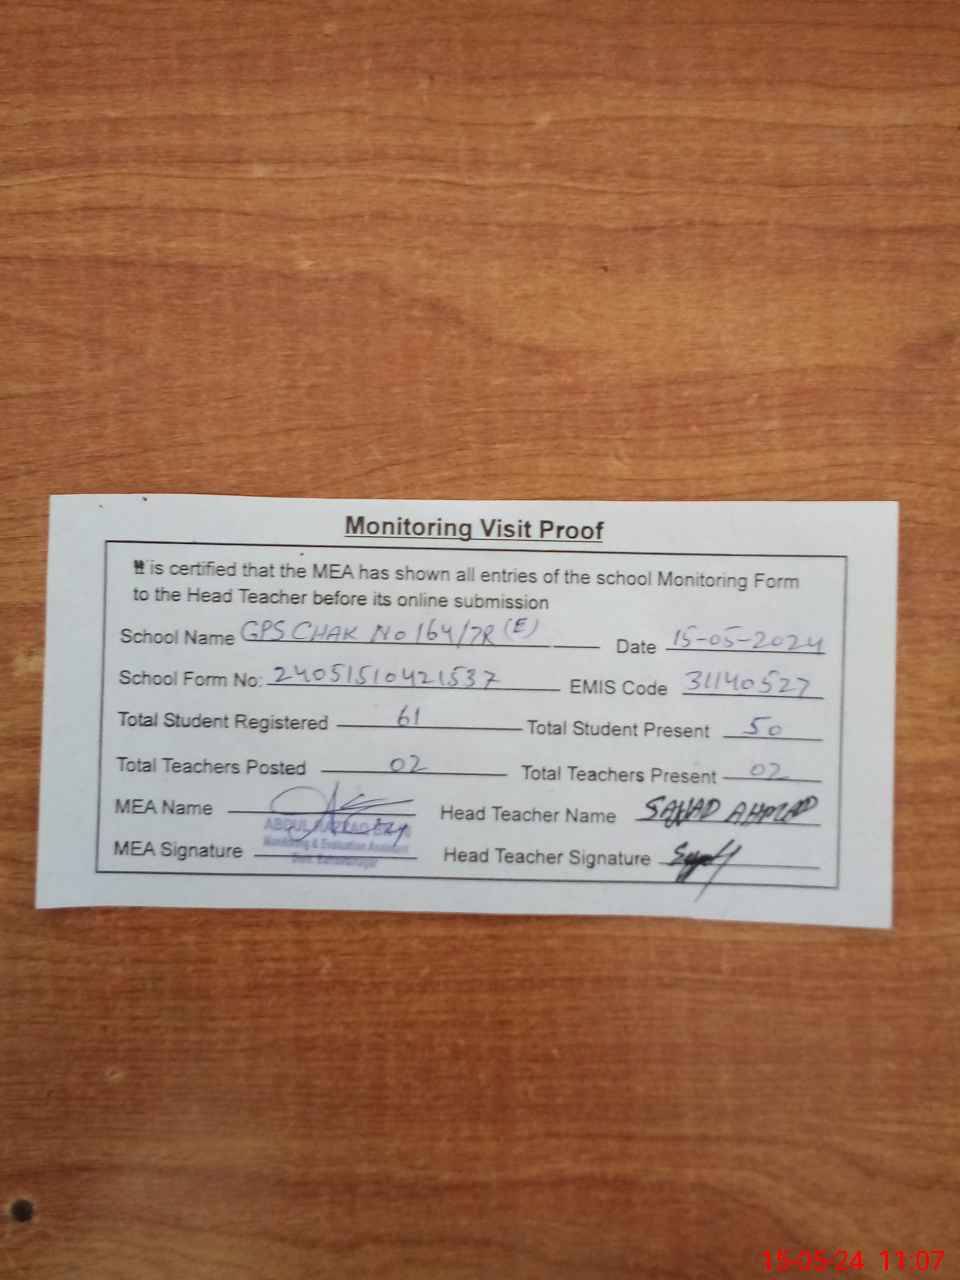 Monitoring Visit Proof
It is certified that the MEA has shown all entries of the school Monitoring Form
to the Head Teacher before its online submission
School Name GPS CHAK No 164/7R (E) Date 15-05-2024
School Form No: 24051510421537 EMIS Code 31140527
Total Student Registered 61 Total Student Present 50
Total Teachers Posted 02 Total Teachers Present 02
MEA Name Head Teacher Name SAJJAD AHMAD
ABDUL RAZZAQ
Monitoring & Evaluation Assistant
MEA Signature Head Teacher Signature
Distt. Bahawalnagar
15-05-24 11:07